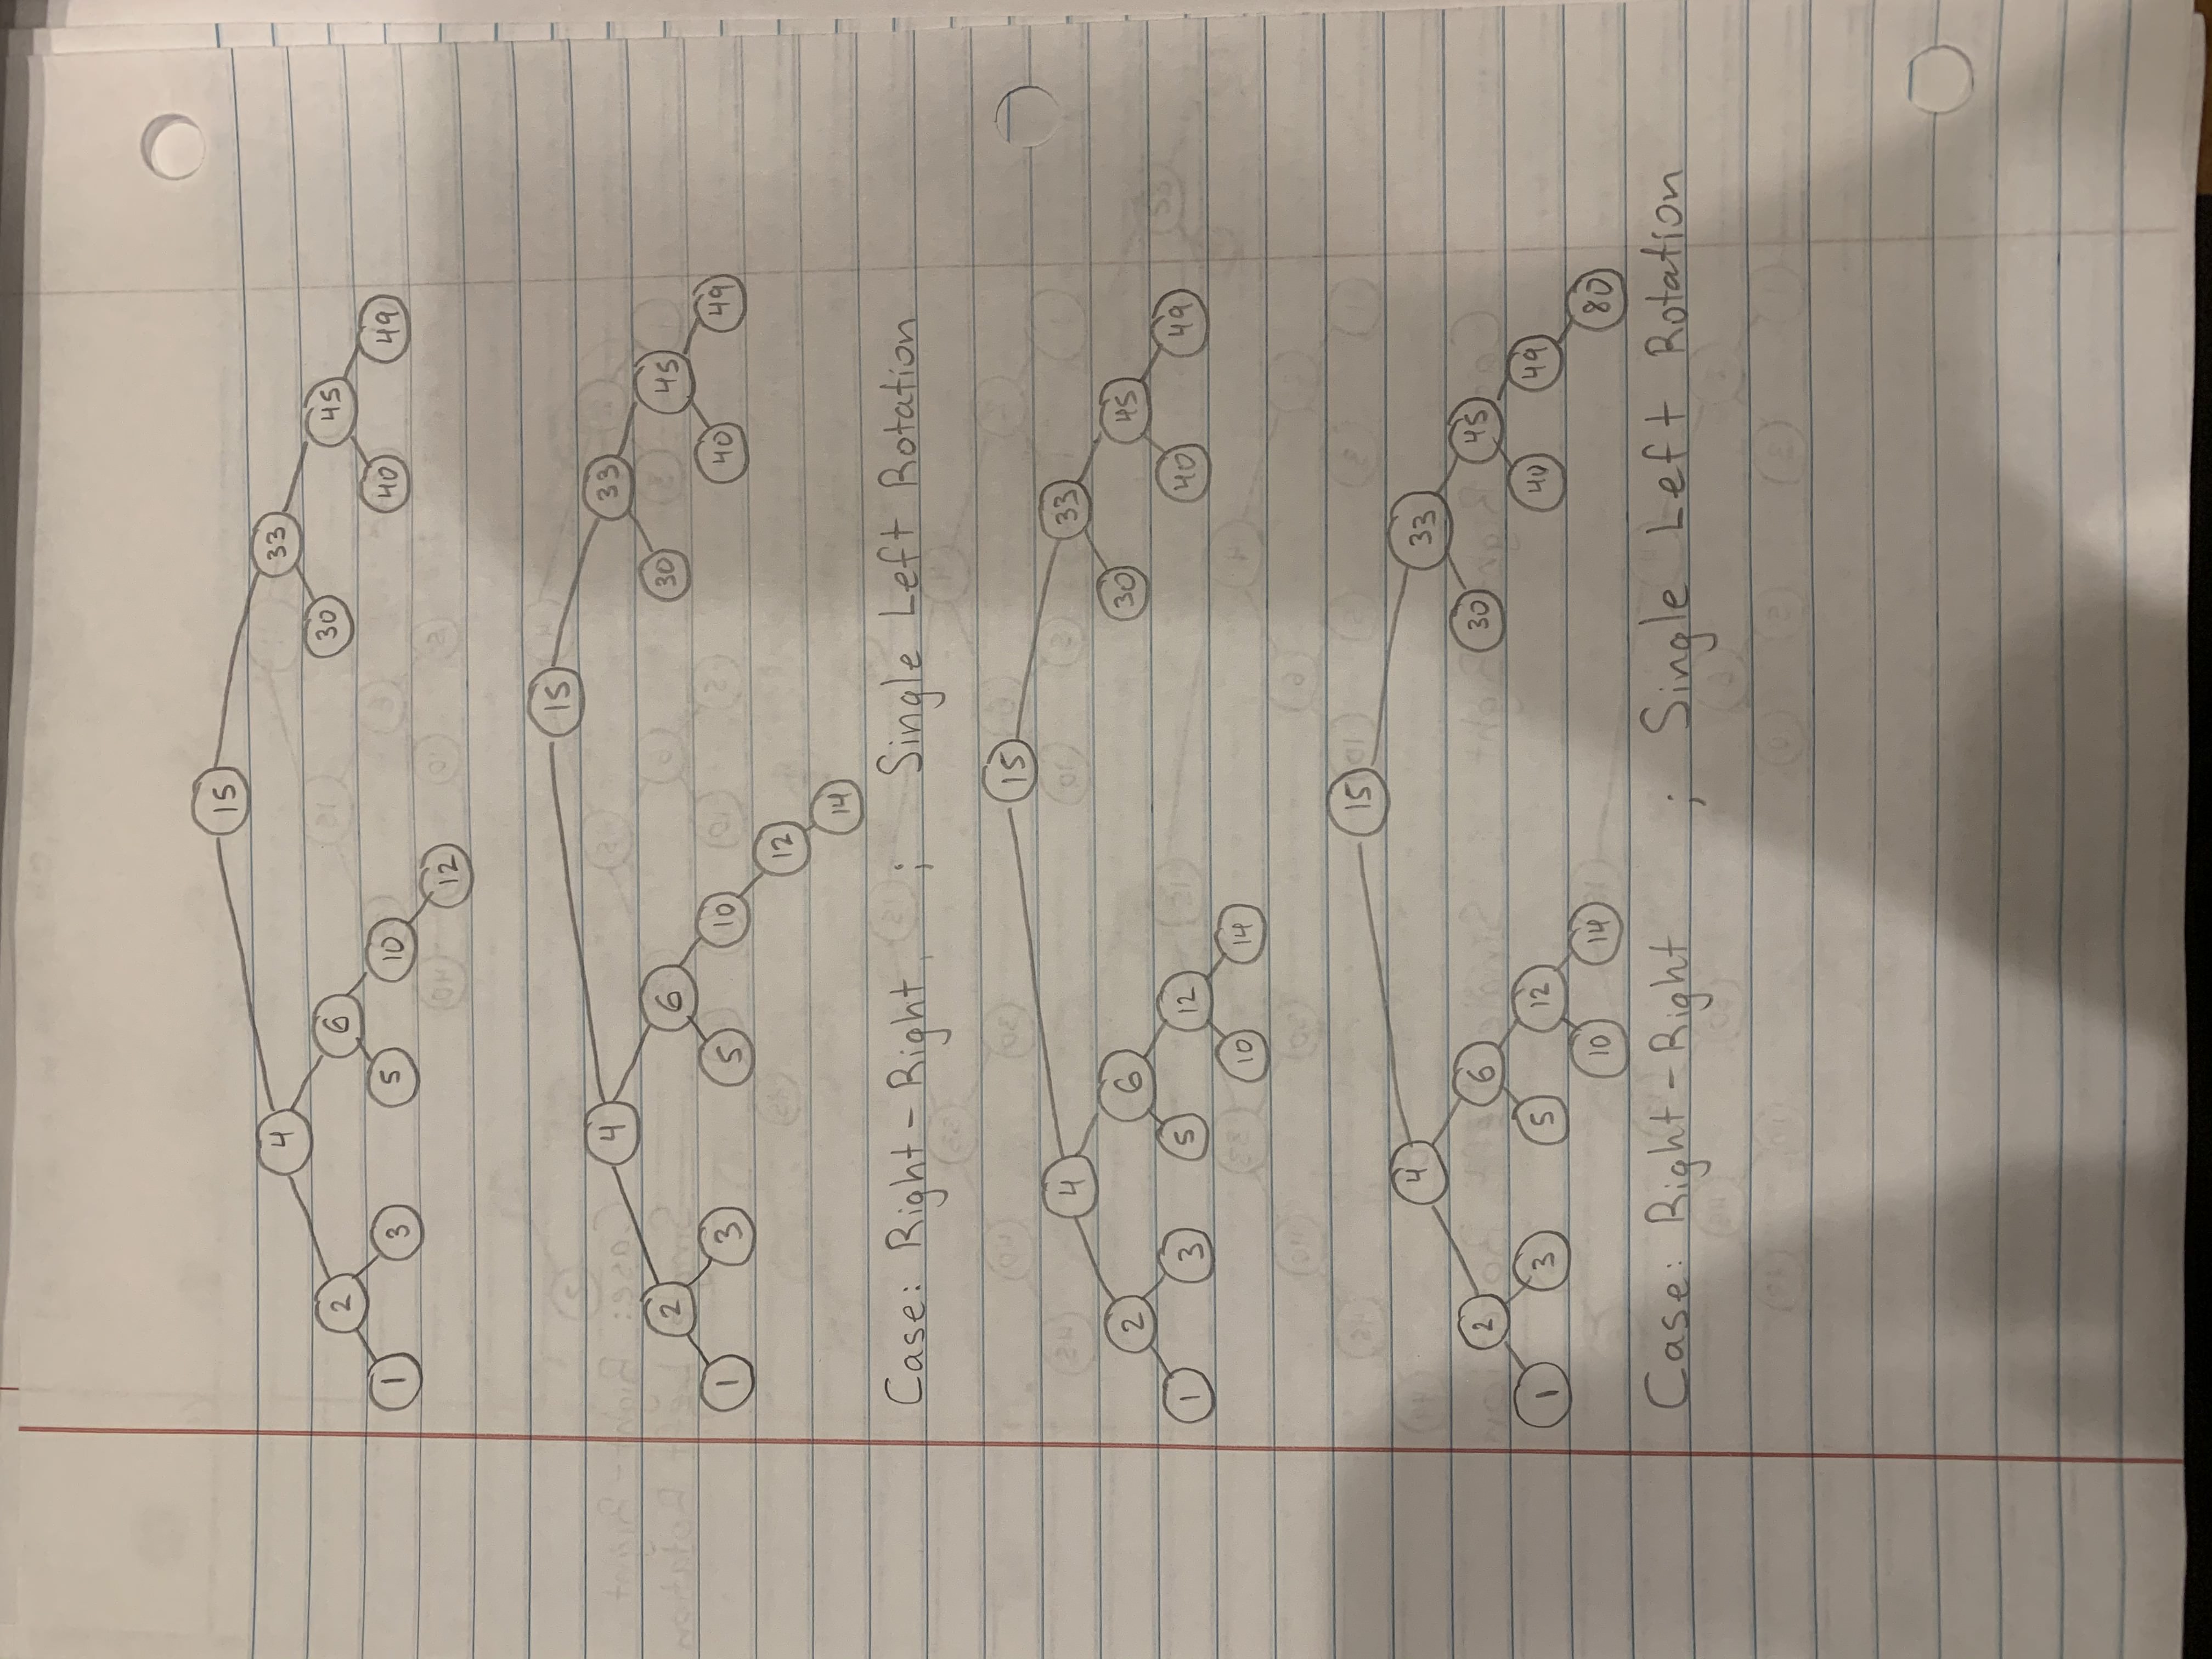 15
4 33
2 6 30 45
1 3 5 10 40 49
12
15
4 33
2 6 30 45
1 3 5 10 40 49
12
14
Case: Right-Right ; Single Left Rotation
15
4 33
2 6 30 45
1 3 5 12 40 49
10 14
15
4 33
2 6 30 45
1 3 5 12 40 49
10 14 80
Case: Right-Right ; Single Left Rotation